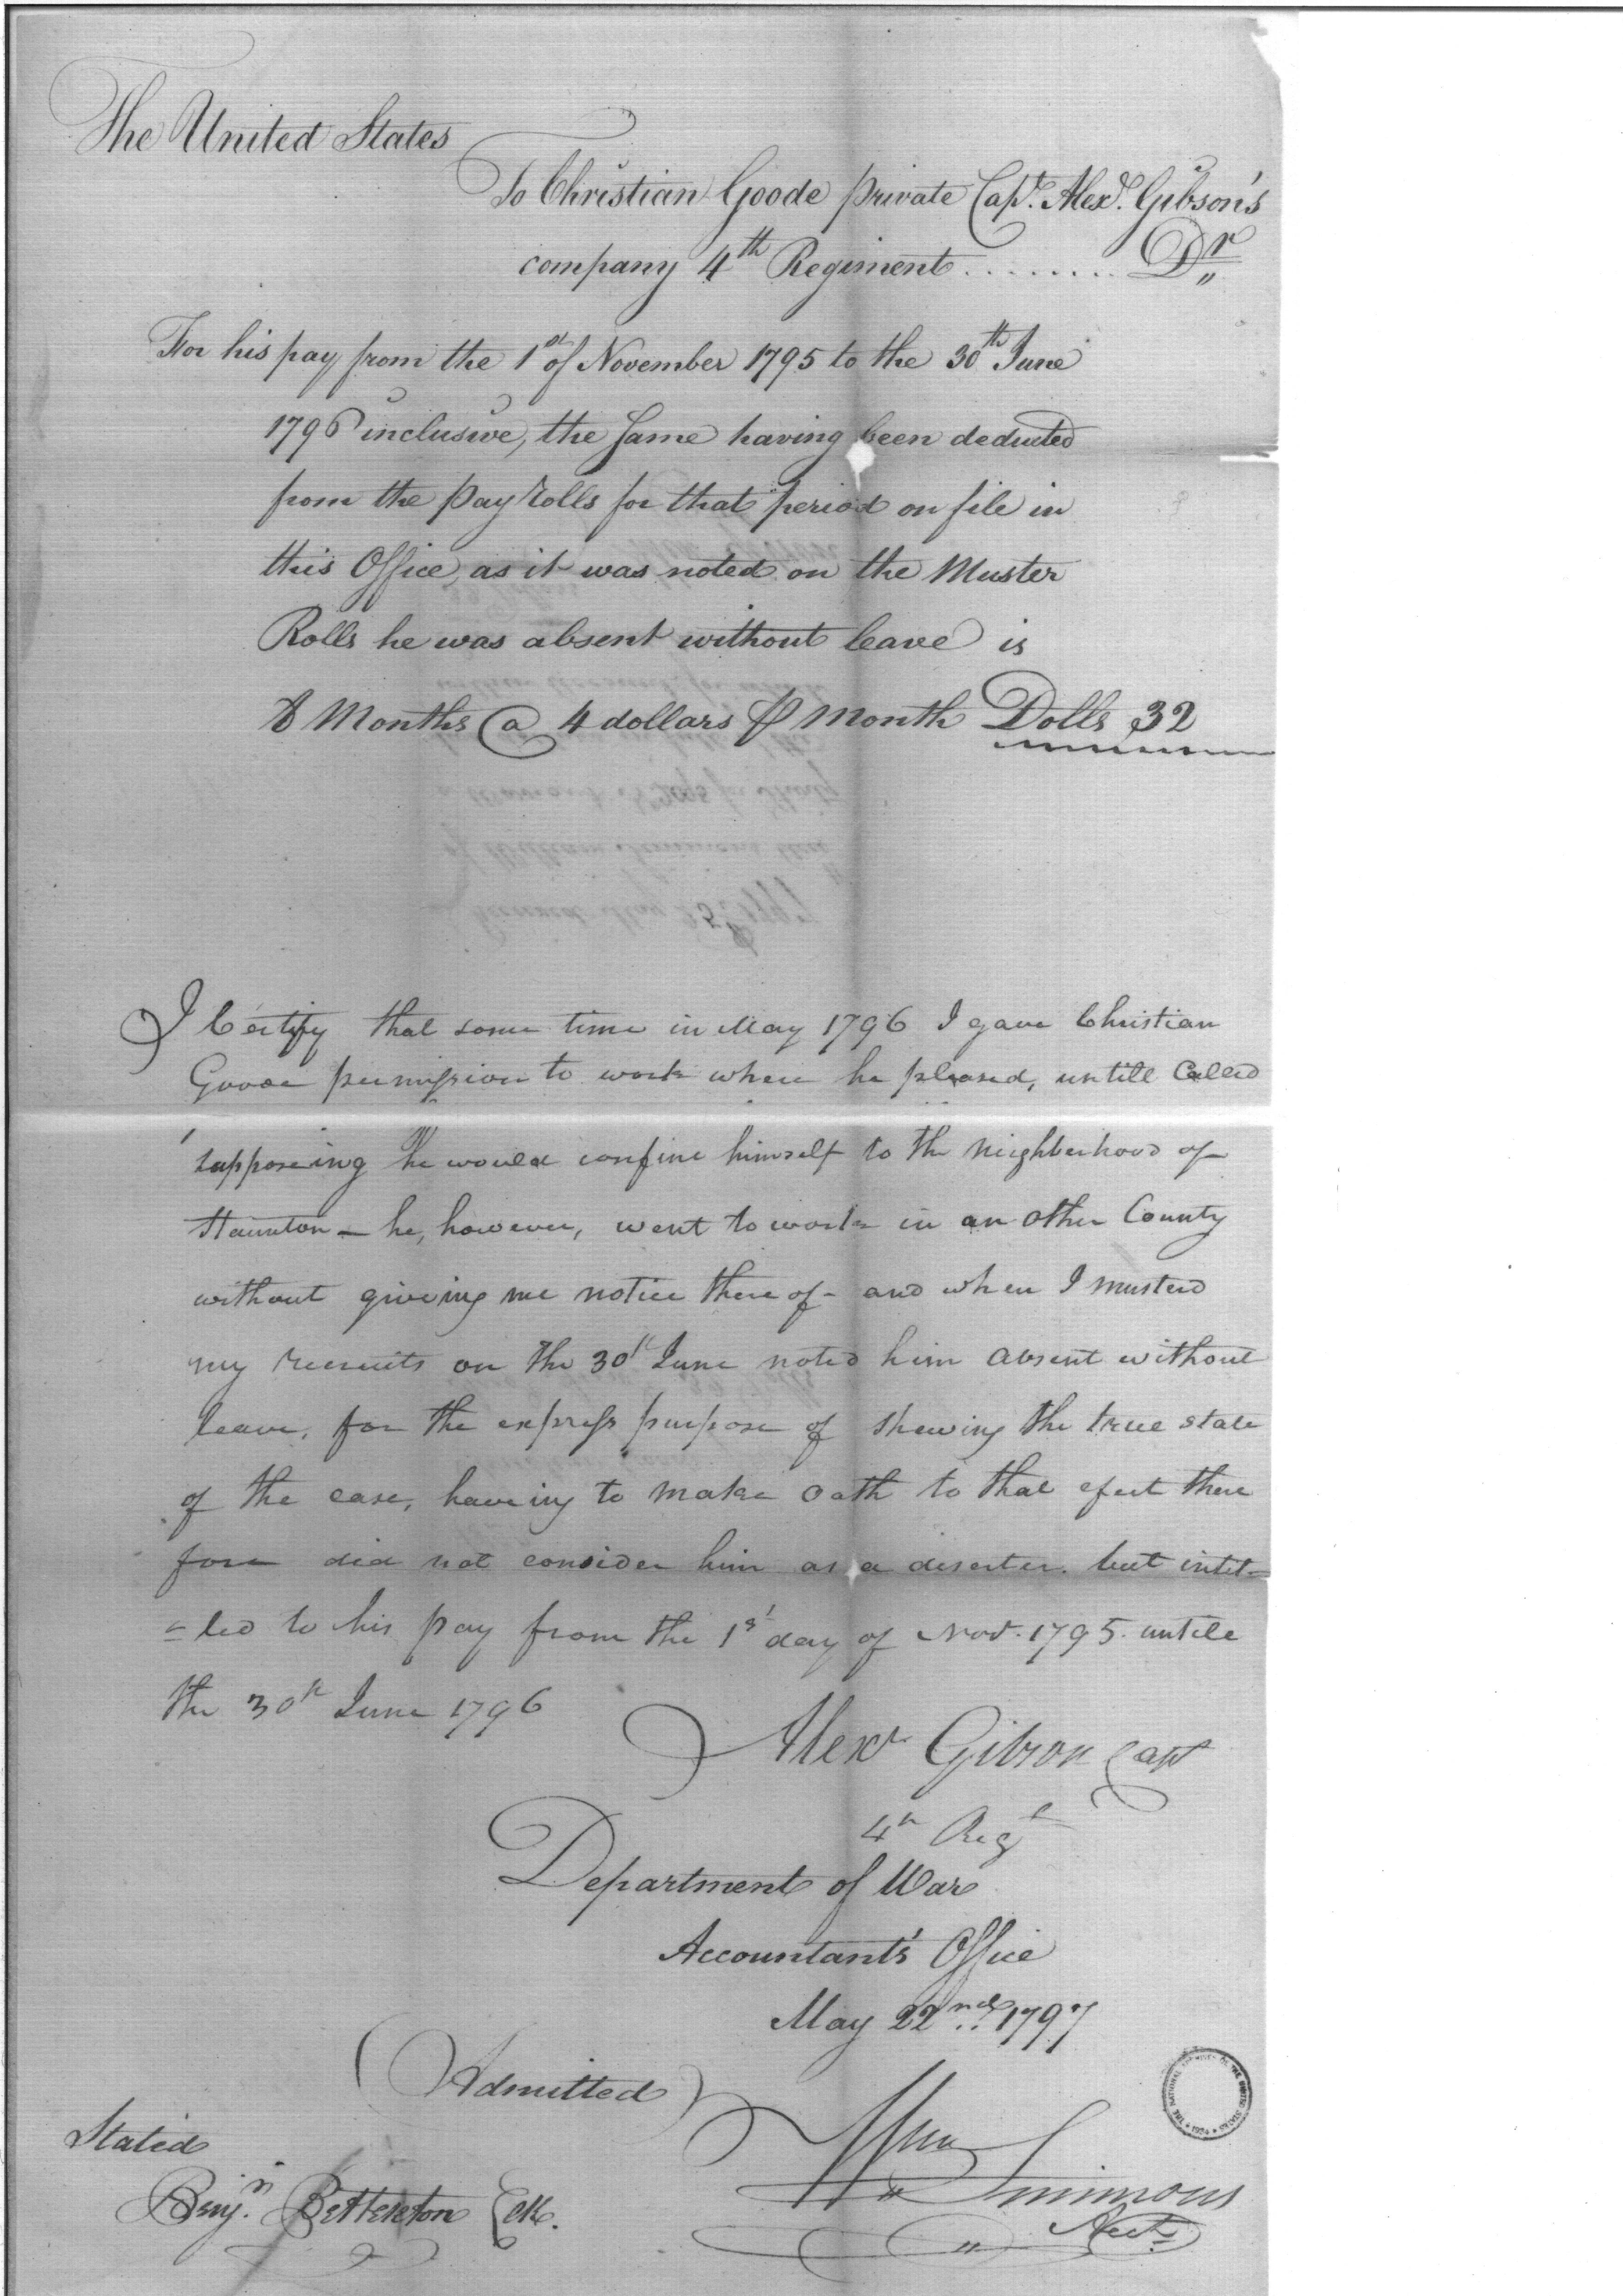 The United States
To Christian Goode private Capt. Alexr. Gibson's
company 4th Regiment ........ Dr
For his pay from the 1st of November 1795 to the 30th June
1796 inclusive, the same having been deducted
from the pay rolls for that period on file in
this Office, as it was noted on the Muster
Rolls he was absent without leave is
8 Months @ 4 dollars ⅌ Month Dolls 32
I Certify that some time in May 1796 I gave Christian
Goode permission to work where he pleased, untill Called
supposeing he would confine himself to the neighberhood of
Staunton – he, however, went to work in an other County
without giveing me notice there of – and when I musterd
my recruits on the 30th June noted him absent without
leave, for the express purpose of shewing the true state
of the case, haveing to make oath to that efect there
fore did not consider him as a deserter. but intit=
=led to his pay from the 1st day of Novr. 1795. untill
the 30th June 1796
Alexr Gibson Capt
4th Regt
Department of War
Accountant's Office
May 22nd 1797
Admitted
Stated
Wm Simmons
Benjn. Betterton Clk.
Acct.
THE NATIONAL ARCHIVES OF THE UNITED STATES * 1934 *